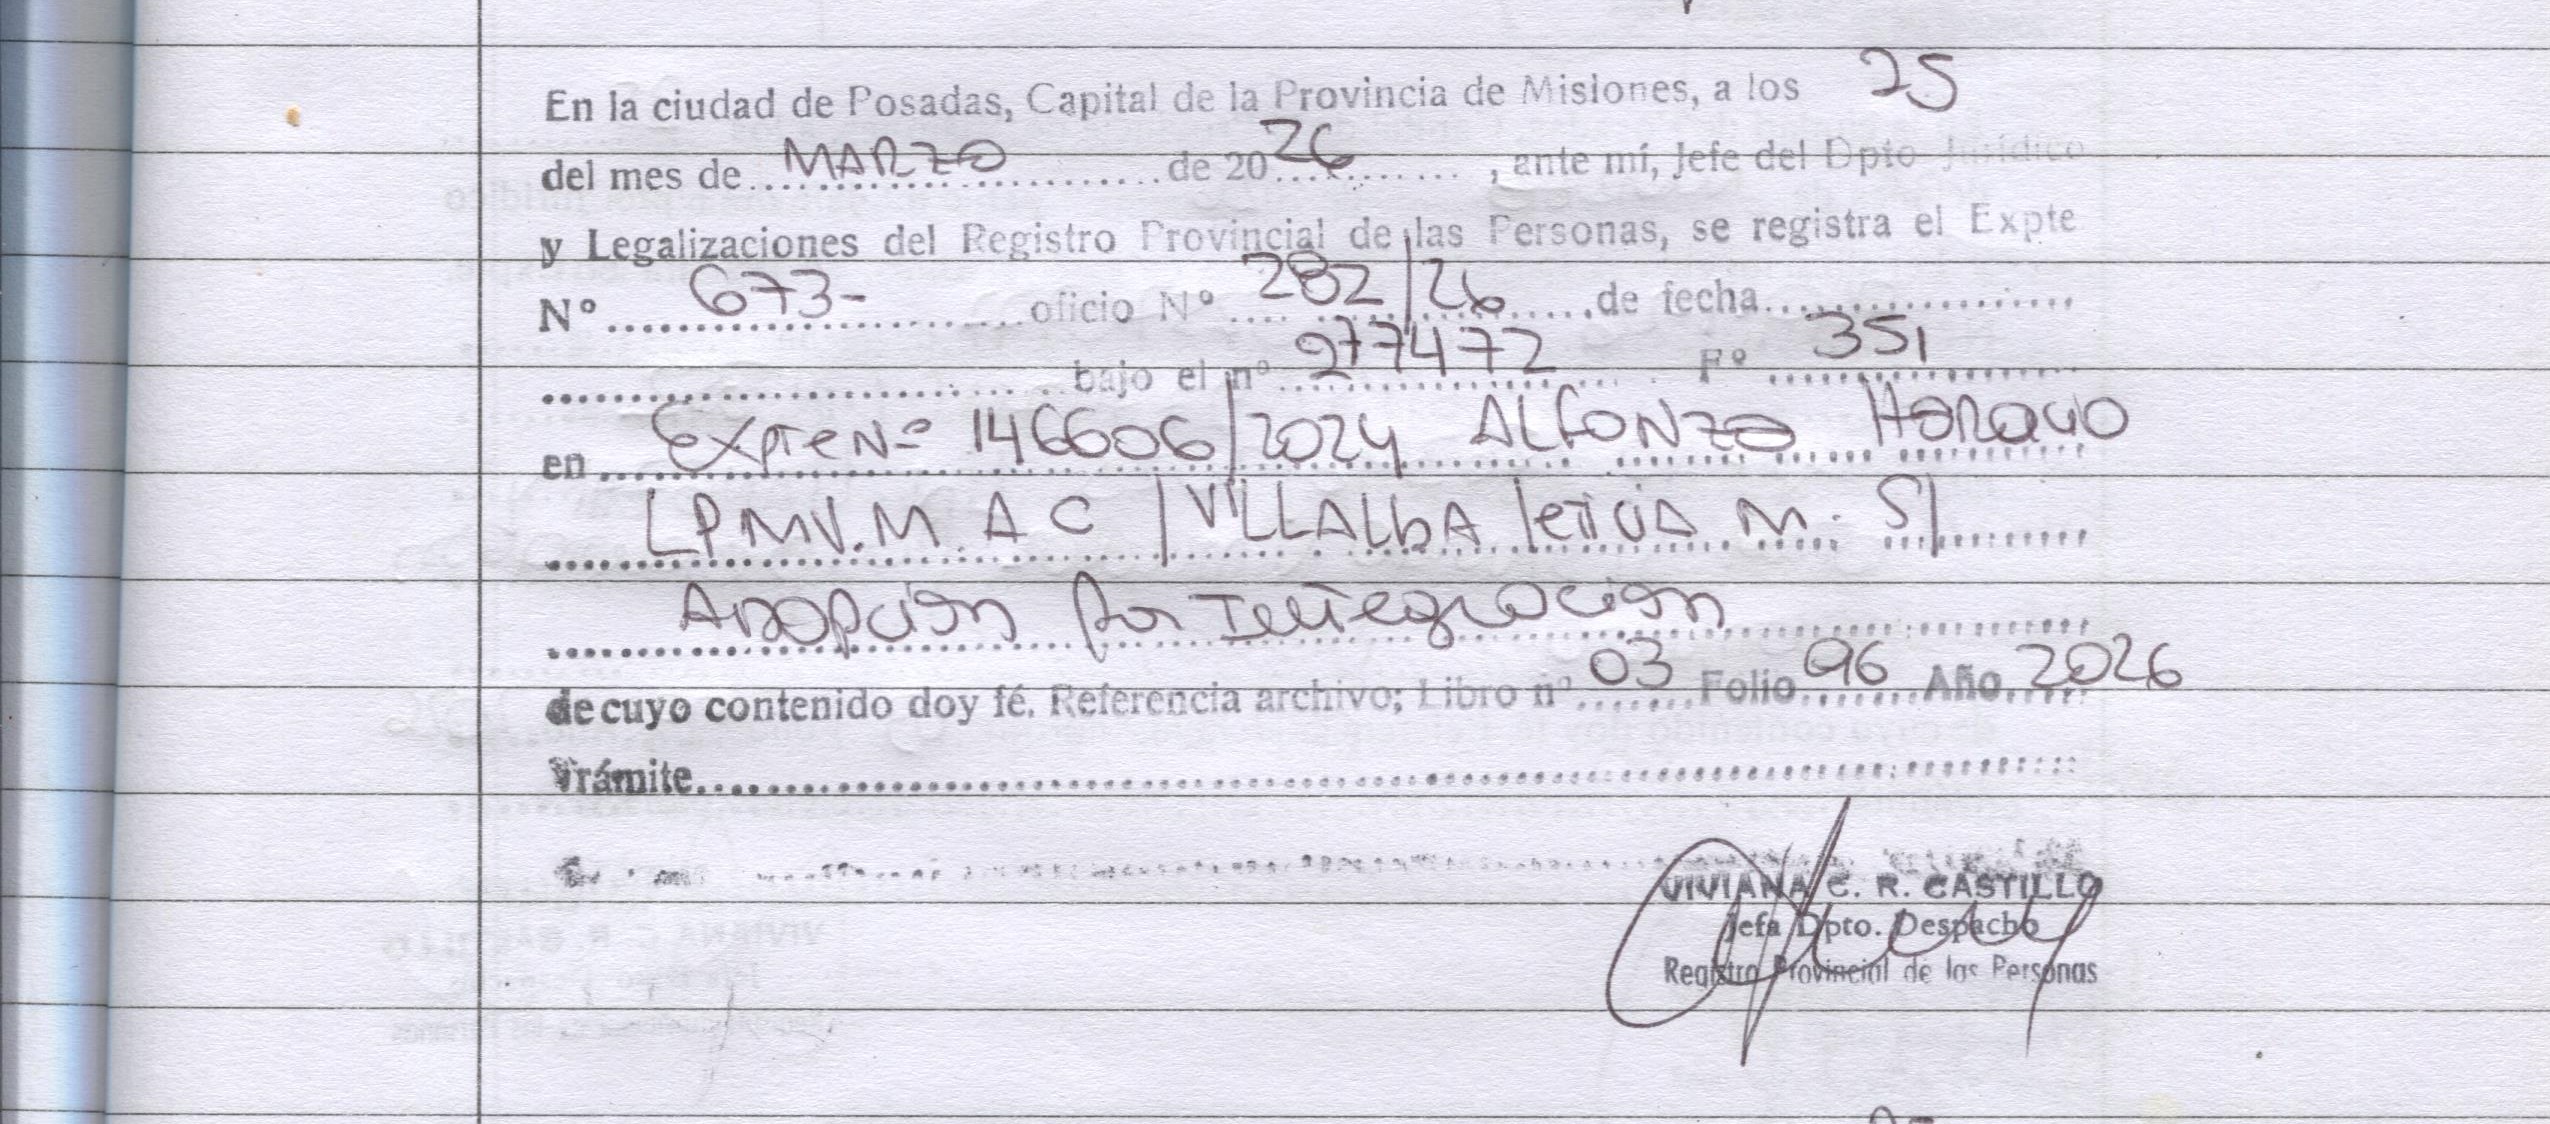 En la ciudad de Posadas, Capital de la Provincia de Misiones, a los 25
del mes de MARZO de 2026, ante mí, Jefe del Dpto Jurídico
y Legalizaciones del Registro Provincial de las Personas, se registra el Expte
Nº 673- oficio Nº 282/26 de fecha
bajo el nº 277472 Fº 351
en Expte Nº 146606/2024 ALFONZO HORACIO
L P M V. M. A C/ VILLALBA LETICIA M. S/
ADOPCIÓN por Integración
de cuyo contenido doy fé. Referencia archivo; Libro nº 03 Folio 96 Año 2026
Trámite
VIVIANA C. R. CASTILLO
Jefa Dpto. Despacho
Registro Provincial de las Personas